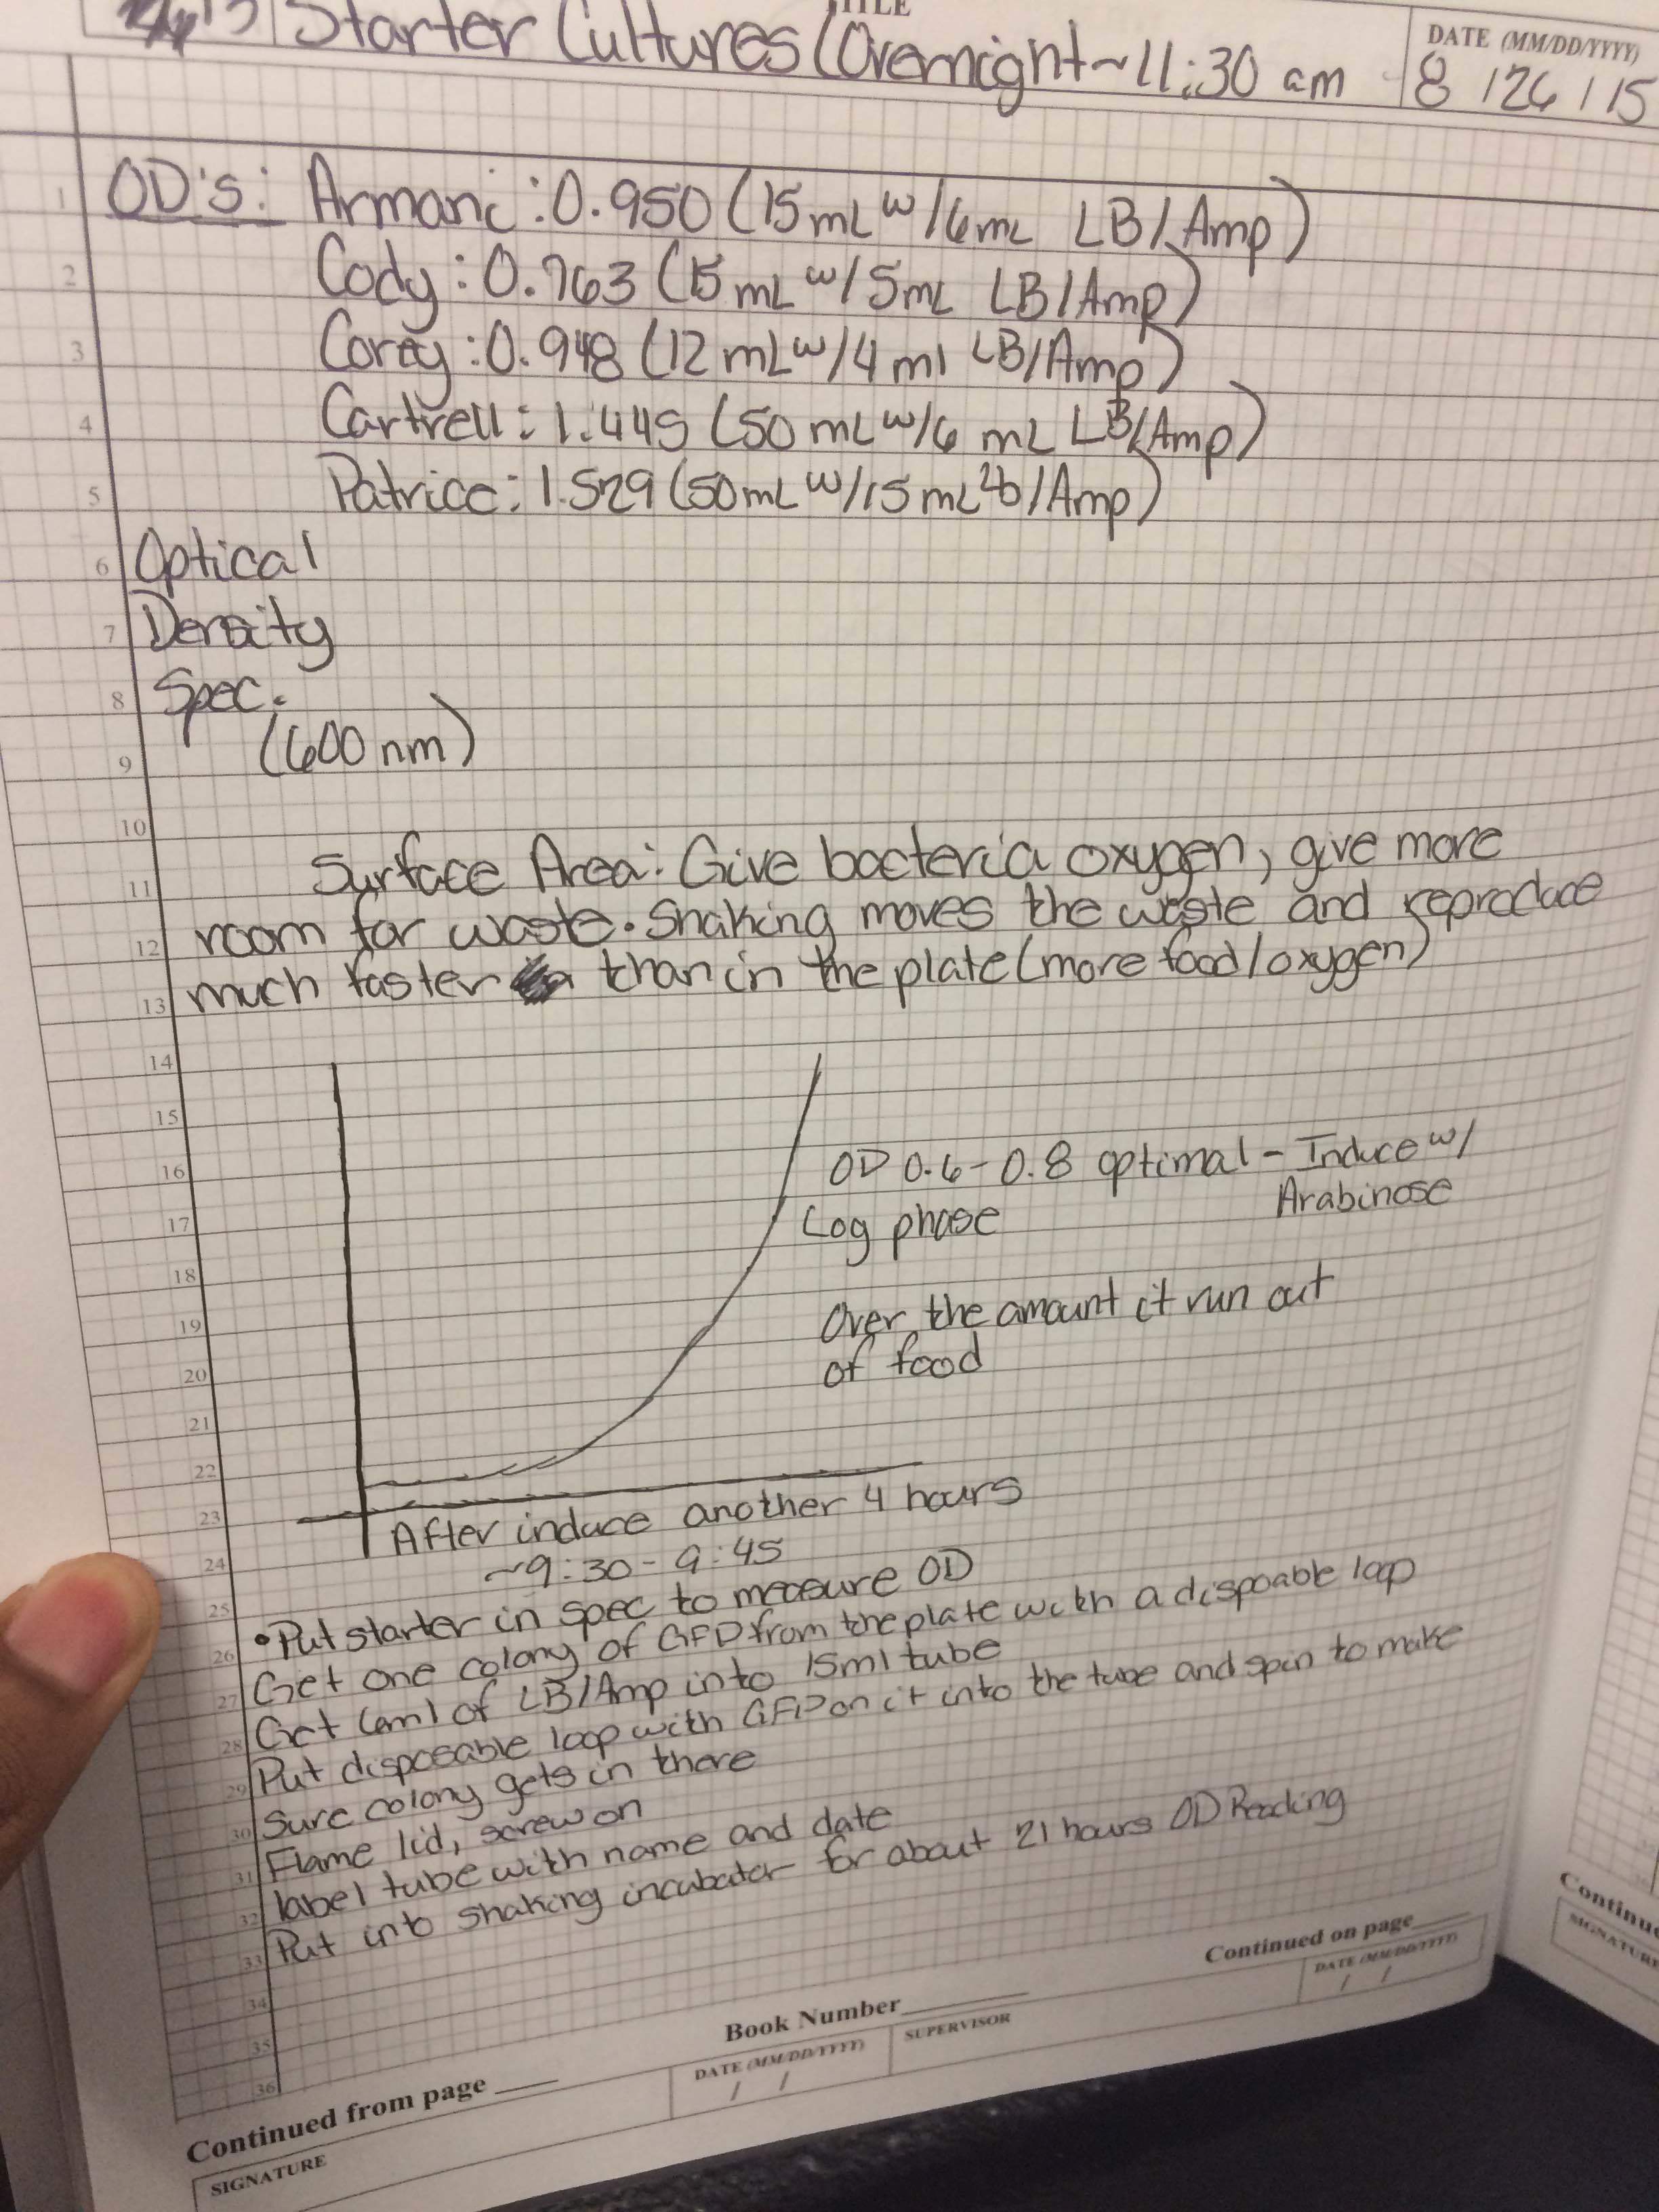 TITLE
Starter Cultures (Overnight ~ 11:30 am
DATE (MM/DD/YYYY)
8 / 26 / 15
1 OD's: Armani: 0.950 (15 mL w/ 6 mL LB/Amp)
2 Cody: 0.763 (15 mL w/ 5 mL LB/Amp)
3 Corey: 0.948 (12 mL w/ 4 ml LB/Amp)
4 Cartrell: 1.445 (50 mL w/ 6 mL LB/Amp)
5 Patrice: 1.529 (50 mL w/ 15 mL lb/Amp)
6 Optical
7 Density
8 Spec.
9 (600 nm)
10
11 Surface Area: Give bacteria oxygen, give more
12 room for waste. Shaking moves the waste and reproduce
13 much faster than in the plate (more food/oxygen)
14
15
16 OD 0.6 - 0.8 optimal - Induce w/
Arabinose
17 Log phase
18
19 Over the amount it run out
20 of food
21
22
23 After induce another 4 hours
24 ~9:30 - 9:45
25 • Put starter in spec to measure OD
26 Get one colony of GFP from the plate with a dispoable loop
27 Get 6ml of LB/Amp into 15ml tube
28 Put disposeable loop with GFP on it into the tube and spin to make
29 Sure colony gets in there
30 Flame lid, screw on
31 label tube with name and date
32 Put into shaking incubator for about 21 hours OD Reading
33
34
35
36
Continued from page
Book Number
Continued on page
SIGNATURE
DATE (MM/DD/YYYY)
/ /
SUPERVISOR
DATE (MM/DD/YYYY)
/ /
SIGNATURE